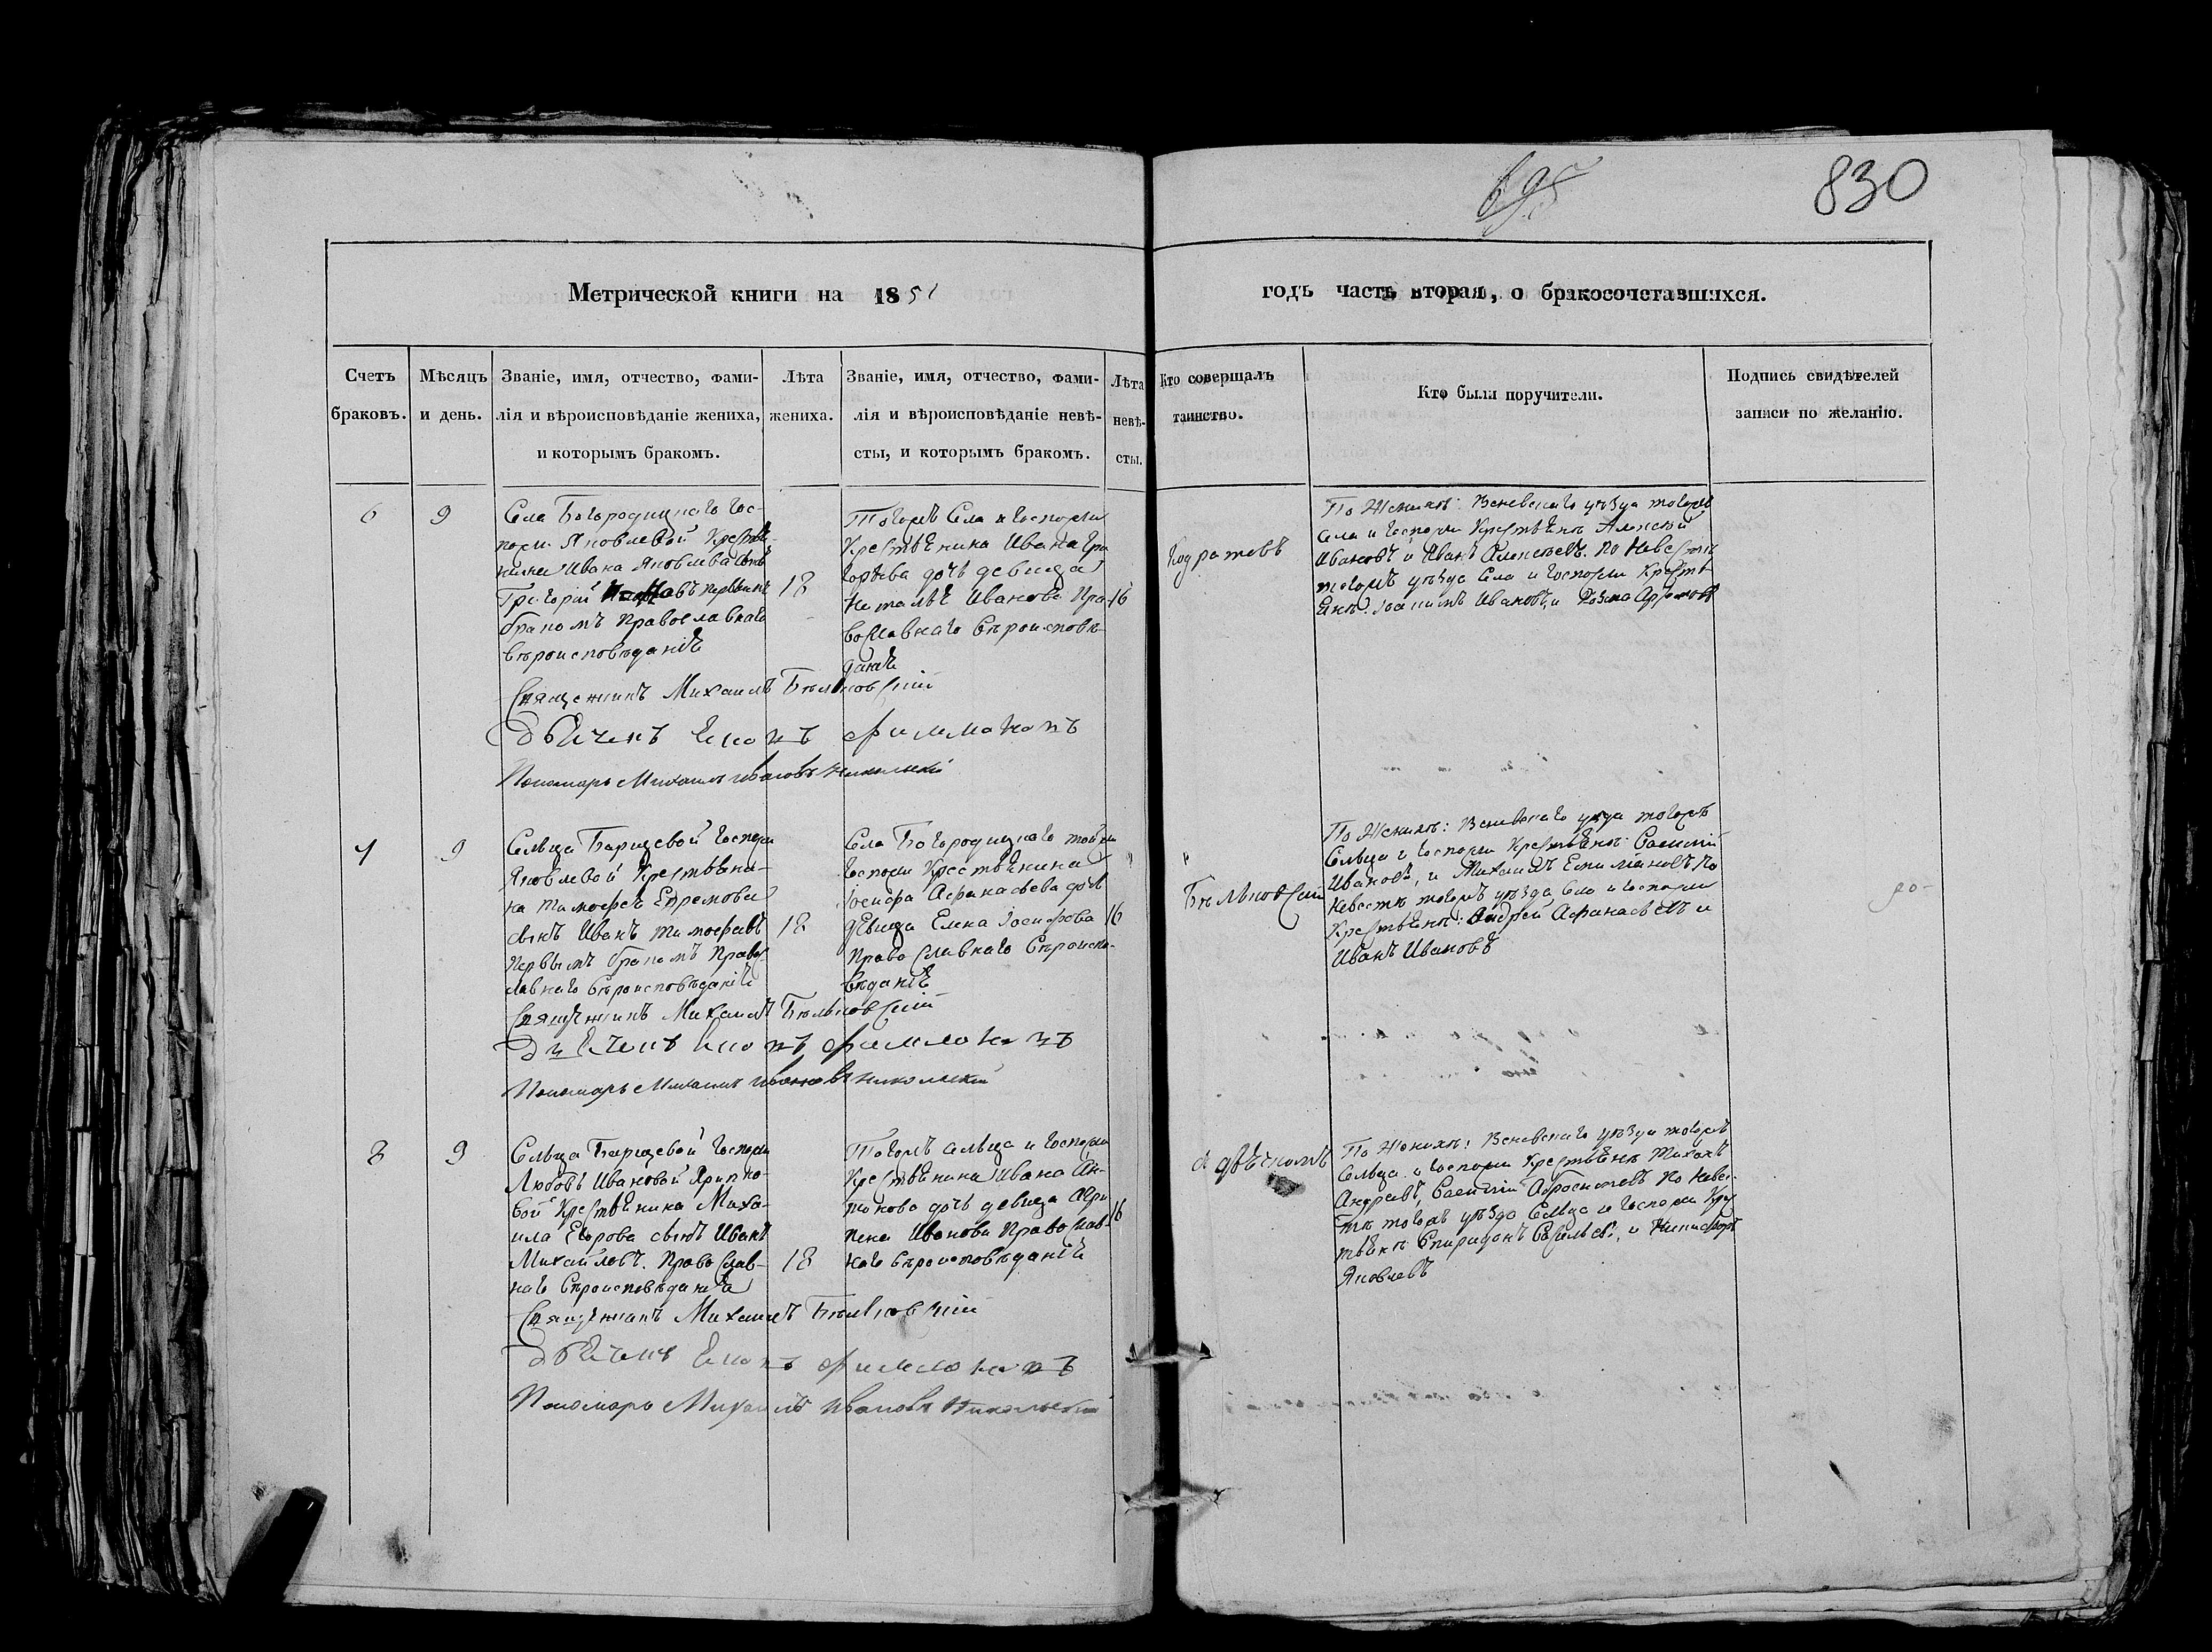 695
830
Метрической книги на 1851
годъ часть вторая, о бракосочетавшихся.
Счетъ браковъ.
Мѣсяцъ и день.
Званіе, имя, отчество, фами-
лія и вѣроисповѣданіе жениха,
и которымъ бракомъ.
Лѣта
жениха.
Званіе, имя, отчество, фами-
лія и вѣроисповѣданіе невѣ-
сты, и которымъ бракомъ.
Лѣта
невѣ-
сты.
Кто совершалъ
таинство.
Кто были поручители.
Подпись свидѣтелей
записи по желанію.
6
9
Села Богородицкаго Гос-
пожи Яковлевой Крестья-
нина Ивана Яковлева сынъ
Григорий первымъ
бракомъ Православнаго
вѣроисповѣданія
18
Тогожъ Села и Госпожи
Крестьянина Ивана Гри
горьева дочь девица
Наталья Иванова Пра-
вославнаго вѣроисповѣ-
данія
16
По Женихѣ: Веневскаго уѣзда тогожъ
села и Госпожи Крестьяне Алексѣй
Ивановъ и Иванъ Алексѣевъ. По Невестѣ
тогожъ уѣзда Села и Госпожи Крестья-
яне: Ивановъ, и
Священникъ Михаилъ Бѣльковскій
Дьяченъ
Пономарь Михаилъ Ивановъ Никольскій
7
9
Сельца Барщевой Госпожи
Яковлевой Крестьяни-
на Тимофея Ефремова
сынъ Иванъ Тимофеевъ
Первымъ бракомъ Правос
лавнаго вѣроисповѣданія
18
Села Богородицкаго тойжи
Госпожи Крестьянина
Іосифа Афанасьева дочь
девица Елена Іосифова
Православнаго вѣроиспо-
вѣданія
16
Бѣльковскій
По Женихѣ: Веневскаго уѣзда тогожъ
Сельца и Госпожи Крестьяне: Василий
Ивановъ, и Михаилъ Емильяновъ По
невестѣ тогожъ уѣзда, Села и Госпожи
Крестьяне: Андрей Афанасьевъ и
Иванъ Ивановъ
Священникъ Михаилъ Бѣльковскій
Дьяченъ
Пономарь Михаилъ Ивановъ Никольскій
8
9
Сельца Барщевой Госпожи
Любовь Ивановой
Крестьянина Миха-
ила Егорова сынъ Иванъ
Михайловъ. Православ-
наго вѣроисповѣданія
18
Тогожъ сельца и Госпожи
Крестьянина Ивана Ан-
тонова дочь девица Агри
пена Иванова Православ-
наго вѣроисповѣданія
16
По Женихѣ: Веневскаго уѣзда тогожъ
Сельца и Госпожи Крестьяне Тихонъ
Андреевъ, Василий Абросимовъ По Невес-
тѣ тогожъ уѣзда Сельца и Госпожи Крес
тьяне: Спиридонъ Васильевъ, и Никифоръ
Яковлевъ
Священникъ Михаилъ Бѣльковскій
Дьяченъ
Пономарь Михаилъ Ивановъ Никольскій